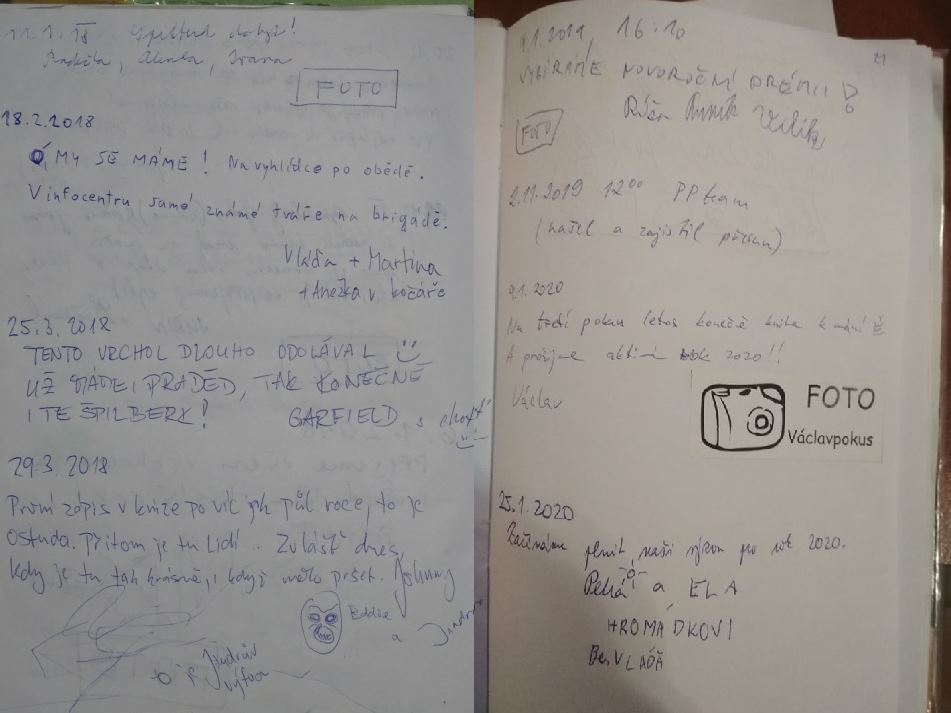 11.1.18 Špilberk dobyt!
Alenka, Ivana
FOTO
18.2.2018
MY SE MÁME! Na vyhlídce po obědě.
V infocentru samé známé tváře na brigádě.
Vláďa + Martina
+ Anežka v kočáře
25.3.2018
TENTO VRCHOL DLOUHO ODOLÁVAL
UŽ MÁME I PRADĚD, TAK KONEČNĚ
I TE ŠPILBERK! GARFIELD s chotí
29.3.2018
První zápis v knize po víc jak půl roce, to je
ostuda. Přitom je tu lidí.. Zvlášť dnes,
kdy je tu tak krásně, i když mělo pršet. Johnny
Eddie
a Jindra
Jindrův
výtvor
9.1.2019, 16:10
21
VYBÍRÁME NOVOROČNÍ PRÉMII!
FOTO
2.11.2019 12⁰⁰ PP team
(našel a zajistil přesun)
9.1.2020
Na třetí pokus letos konečně kniha k mání
A prožijme aktivní rok 2020!!
Václav
FOTO
Václavpokus
25.1.2020
Začínáme plnit naši výzvu po rok 2020.
a ELA
HROMÁDKOVI
Bez VLÁĎI